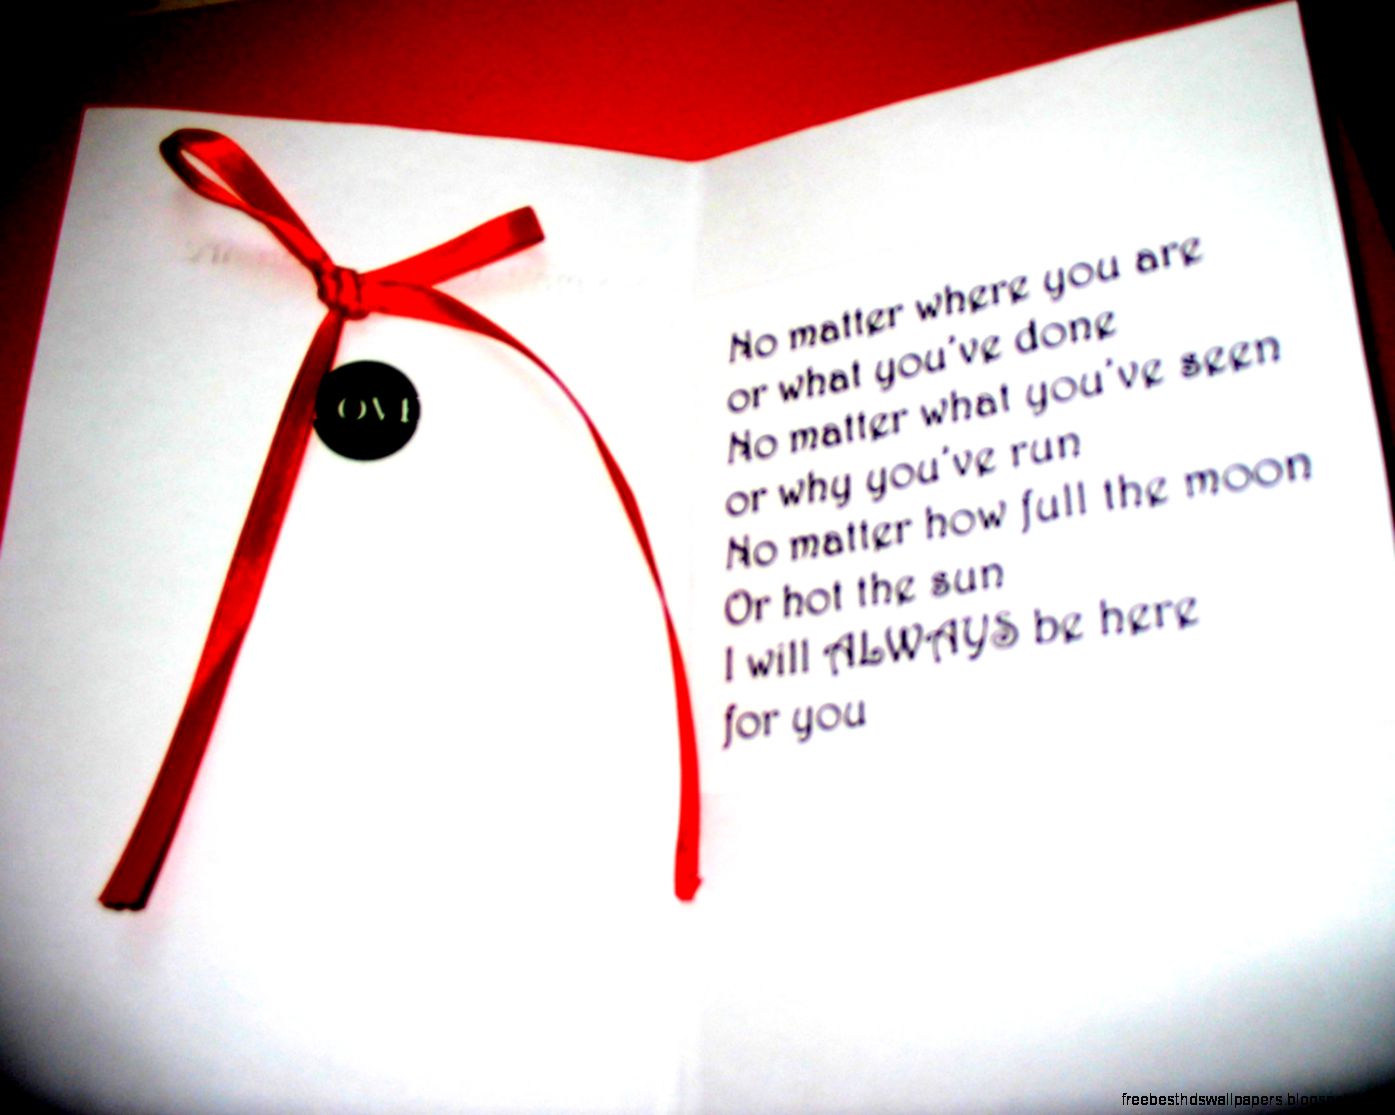 No matter where you are
or what you've done
No matter what you've seen
or why you've run
No matter how full the moon
Or hot the sun
I will ALWAYS be here
for you